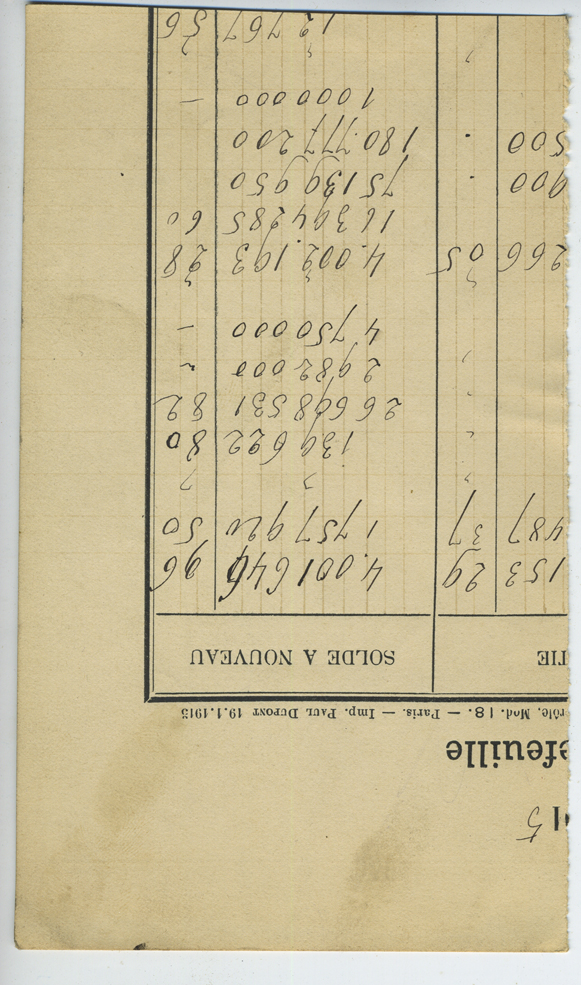 15
efeuille
rôle. Mod. 18. — Paris. — Imp. PAUL DUPONT 19.1.1915
TIE SOLDE A NOUVEAU
153 29 4.001 646 96
487 37 1 757 920 50
" " "
" 130 622 80
" 26 698 531 82
" 2 982 000 "
4 750 000 —
266 05 4.002.193 28
16 394 285 60
900 . 75 130 950
500 . 180.777 200
1 000 000 —
" " "
12 767 56